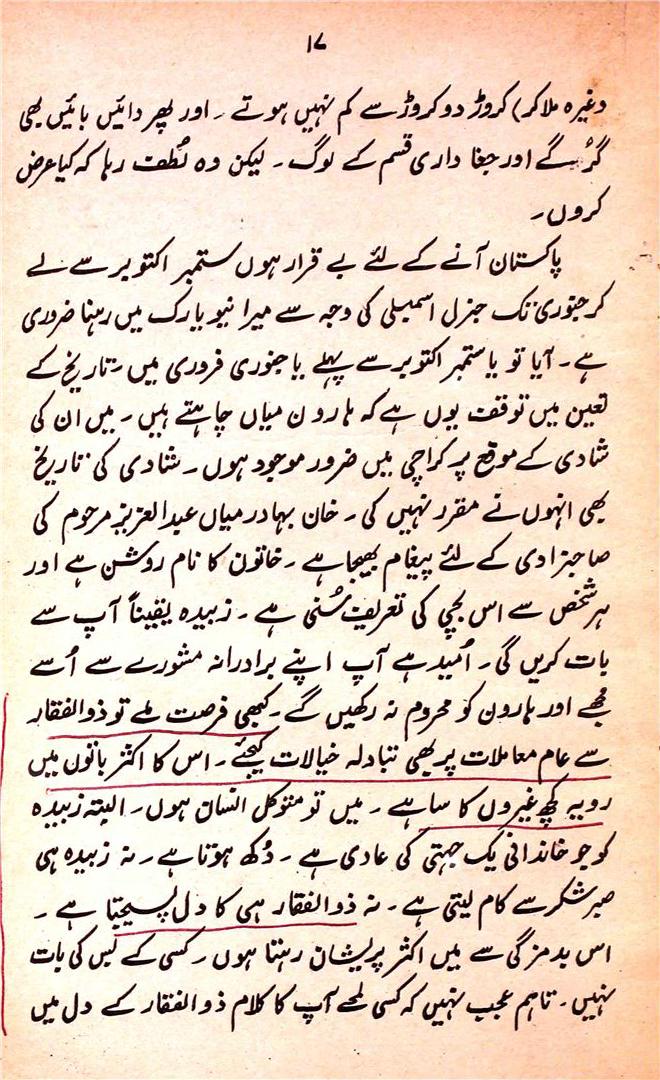 ۱۷
وغیرہ ملاکر) کروڑ دو کروڑ سے کم نہیں ہوتے ۔ اور پھر دائیں بائیں بھی
گرُگے اور جغا داری قسم کے لوگ ۔ لیکن وہ لُطف رہا کہ کیا عرض
کروں ۔
پاکستان آنے کے لئے بے قرار ہوں ستمبر اکتوبر سے لے
کر جنوری تک جنرل اسمبلی کی وجہ سے میرا نیویارک میں رہنا ضروری
ہے ۔ آیا تو یا ستمبر اکتوبر سے پہلے یا جنوری فروری میں ۔ تاریخ کے
تعین میں توقف یوں ہے کہ ہارون میاں چاہتے ہیں ۔ میں ان کی
شادی کے موقع پر کراچی میں ضرور موجود ہوں ۔ شادی کی تاریخ
بھی انہوں نے مقرر نہیں کی ۔ خان بہادر میاں عبدالعزیز مرحوم کی
صاحبزادی کے لئے پیغام بھیجا ہے ۔ خاتون کا نام روشن ہے اور
ہر شخص سے اس بچی کی تعریف سُنی ہے ۔ زبیدہ یقیناً آپ سے
بات کریں گی ۔ اُمید ہے آپ اپنے برادرانہ مشورے سے اُسے
مجھے اور ہارون کو محروم نہ رکھیں گے ۔ کبھی فرصت ملے تو ذوالفقار
سے عام معاملات پر بھی تبادلہ خیالات کیجئے ۔ اس کا اکثر باتوں میں
رویہ کچھ غیروں کا سا ہے ۔ میں تو متوکل انسان ہوں ۔ البتہ زبیدہ
کو جو خاندانی یک جہتی کی عادی ہے ۔ دُکھ ہوتا ہے ۔ نہ زبیدہ ہی
صبر شکر سے کام لیتی ہے ۔ نہ ذوالفقار ہی کا دل پسیجتا ہے ۔
اس بدمزگی سے میں اکثر پریشان رہتا ہوں ۔ کسی کے بس کی بات
نہیں ۔ تاہم عجب نہیں کہ کسی لمحے آپ کا کلام ذوالفقار کے دل میں